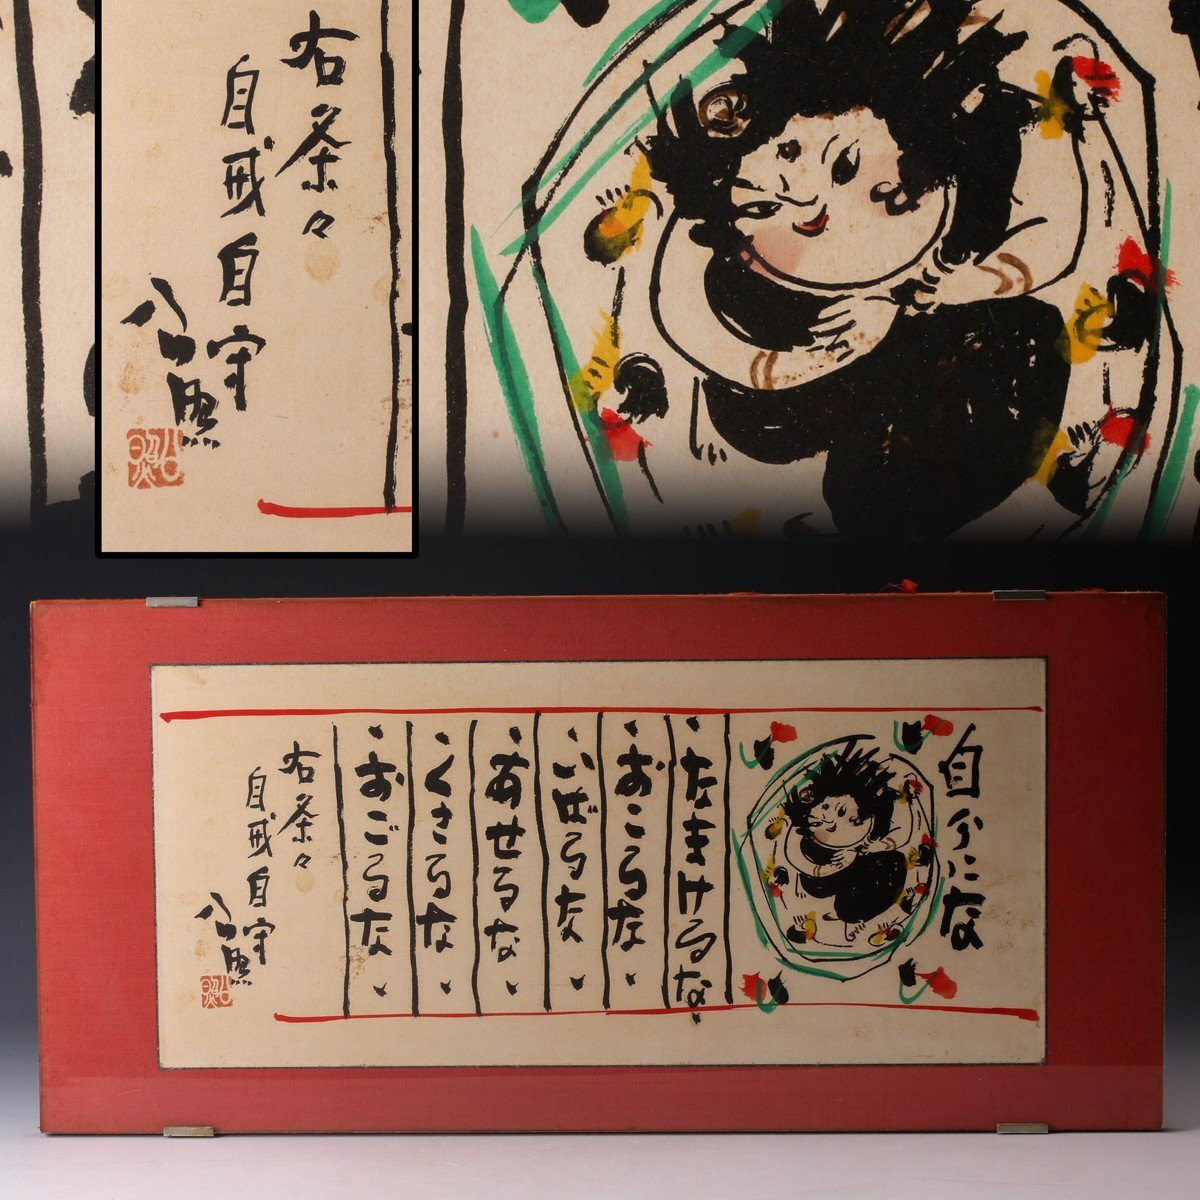 右条々
自戒自守
公照
自分にな
・なまけるな・
・おこるな・
・いばるな・
・あせるな・
・くさるな・
・おごるな・
右条々
自戒自守
公照